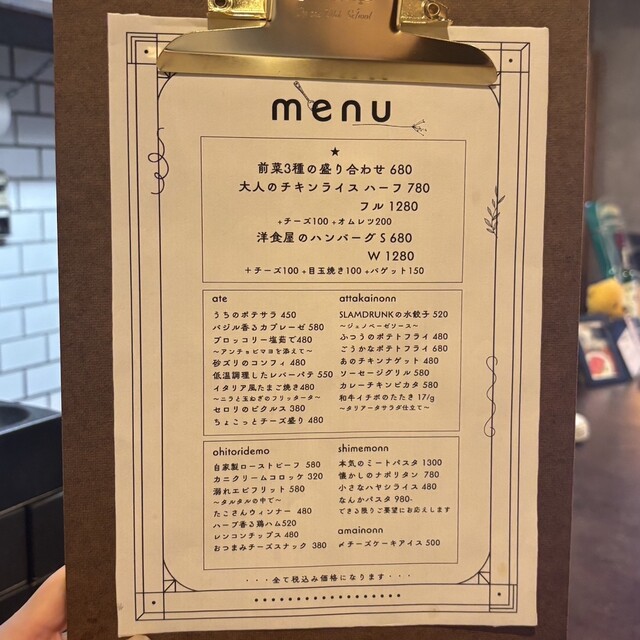 menu
★
前菜3種の盛り合わせ 680
大人のチキンライス ハーフ 780
フル 1280
+チーズ100 +オムレツ200
洋食屋のハンバーグ S 680
W 1280
+チーズ100 +目玉焼き100 +バゲット150
ate
うちのポテサラ 450
バジル香るカプレーゼ 580
ブロッコリー塩茹で480
～アンチョビマヨを添えて～
砂ズリのコンフィ 480
低温調理したレバーパテ 550
イタリア風たまご焼き480
～ニラと玉ねぎのフリッタータ～
セロリのピクルス 380
ちょこっとチーズ盛り 480
attakainonn
SLAMDRUNKの水餃子 520
～ジェノベーゼソース～
ふつうのポテトフライ 480
ごうかなポテトフライ 680
あのチキンナゲット 480
ソーセージグリル 580
カレーチキンピカタ 580
和牛イチボのたたき 17/g
～タリアータサラダ仕立て～
ohitoridemo
自家製ローストビーフ 580
カニクリームコロッケ 320
溺れエビフリット 580
～タルタルの中で～
たこさんウィンナー 480
ハーブ香る鶏ハム520
レンコンチップス 480
おつまみチーズスナック 380
shimemonn
本気のミートパスタ 1300
懐かしのナポリタン 780
小さなハヤシライス 480
なんかパスタ 980-
できる限りご要望にお応えします
amainonn
〆チーズケーキアイス 500
・・・全て税込み価格になります・・・